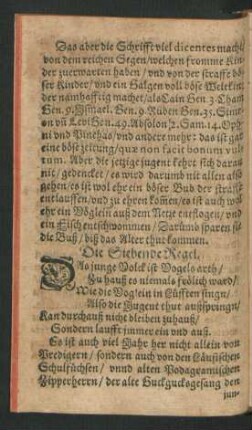 Das aber die Schrifft viel dicentes macht
von dem reichen Segen/ welchen fromme Kin-
der zuerwarten haben/ vnd von der straffe bö-
ser Kinder/ vnd ein Galgen voll böse Welckin-
der namhafftig machet/ als Cain Gen. 3. Cham
Gen. 9. Ismael. Gen. 9. Ruben Gen. 35. Simeon
vn̄ Levi Gen. 49. Absolon 2. Sam. 14. Oph-
ni vnd Pinehas/ vnd andere mehr: das ist gar
eine böse zeitung/ quæ non facit bonum vul-
tum. Aber die jetzige jugent kehrt sich daran
nit/ gedencket/ es wird darumb nit allen also
gehen/ es ist wol ehr ein böser Bub der straffe
entlauffen/ vnd zu ehren komēn/ es ist auch wol
ehr ein Vöglein auß dem Netze entflogen/ vnd
ein Fisch entschwommen/ Darumb sparen sie
die Buß/ biß das Alter thut kommen.
Die Siebende Regel.
Das junge Volck ist Vogels arth/
Zu hauß es niemals frölich ward/
Wie die Vög'lein in Lüfften singn/
Also die Jugent thut außspringn/
Kan durchauß nicht bleiben zuhauß/
Sondern laufft jmmer ein vnd auß.
Es ist auch viel Jahr her nicht allein von
Predigern/ sondern auch von den Läusischen
Schulfüchsen/ vnnd alten Podagramischen
Zipperherrn/ der alte Guckgucksgesang den
jun-